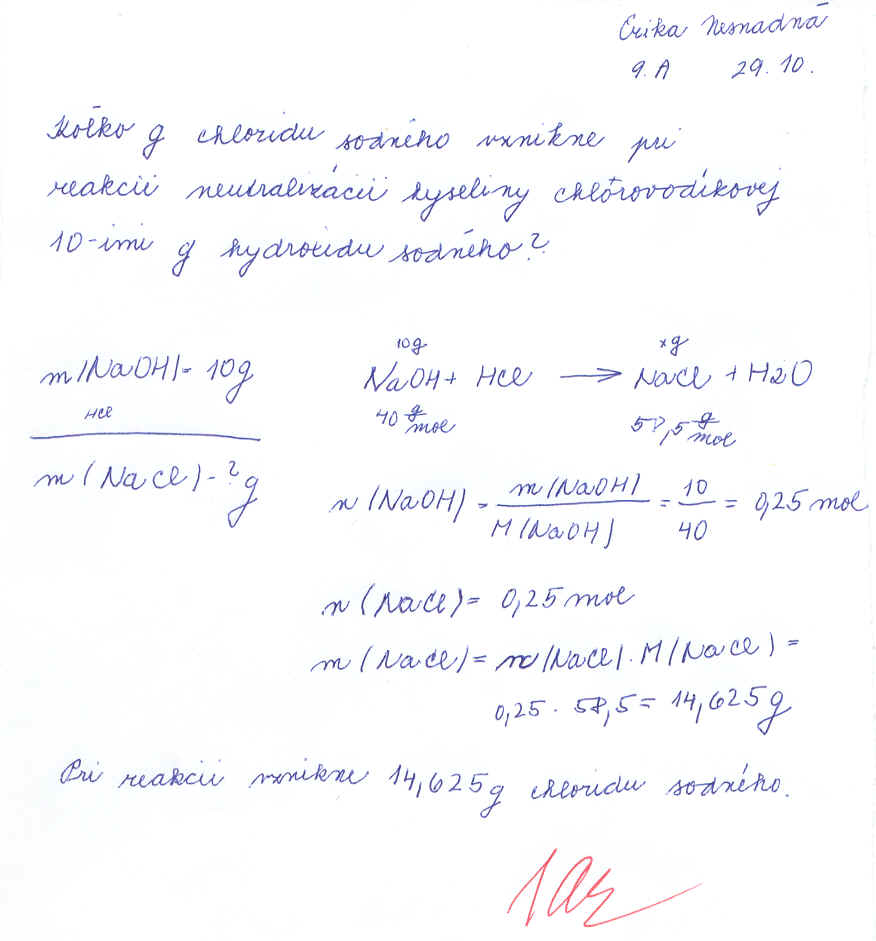 Erika Nesnadná
9. A 29. 10.
Koľko g chloridu sodného vznikne pri
reakcii neutralizácii kyseliny chlórovodíkovej
10-imi g hydroxidu sodného?
10g xg
m(NaOH) = 10g NaOH + HCl → NaCl + H2O
HCl 40 g/mol 58,5 g/mol
m(NaCl) = ? g
n(NaOH) = m(NaOH) / M(NaOH) = 10 / 40 = 0,25 mol
n(NaCl) = 0,25 mol
m(NaCl) = n(NaCl) . M(NaCl) =
0,25 . 58,5 = 14,625g
Pri reakcii vznikne 14,625g chloridu sodného.